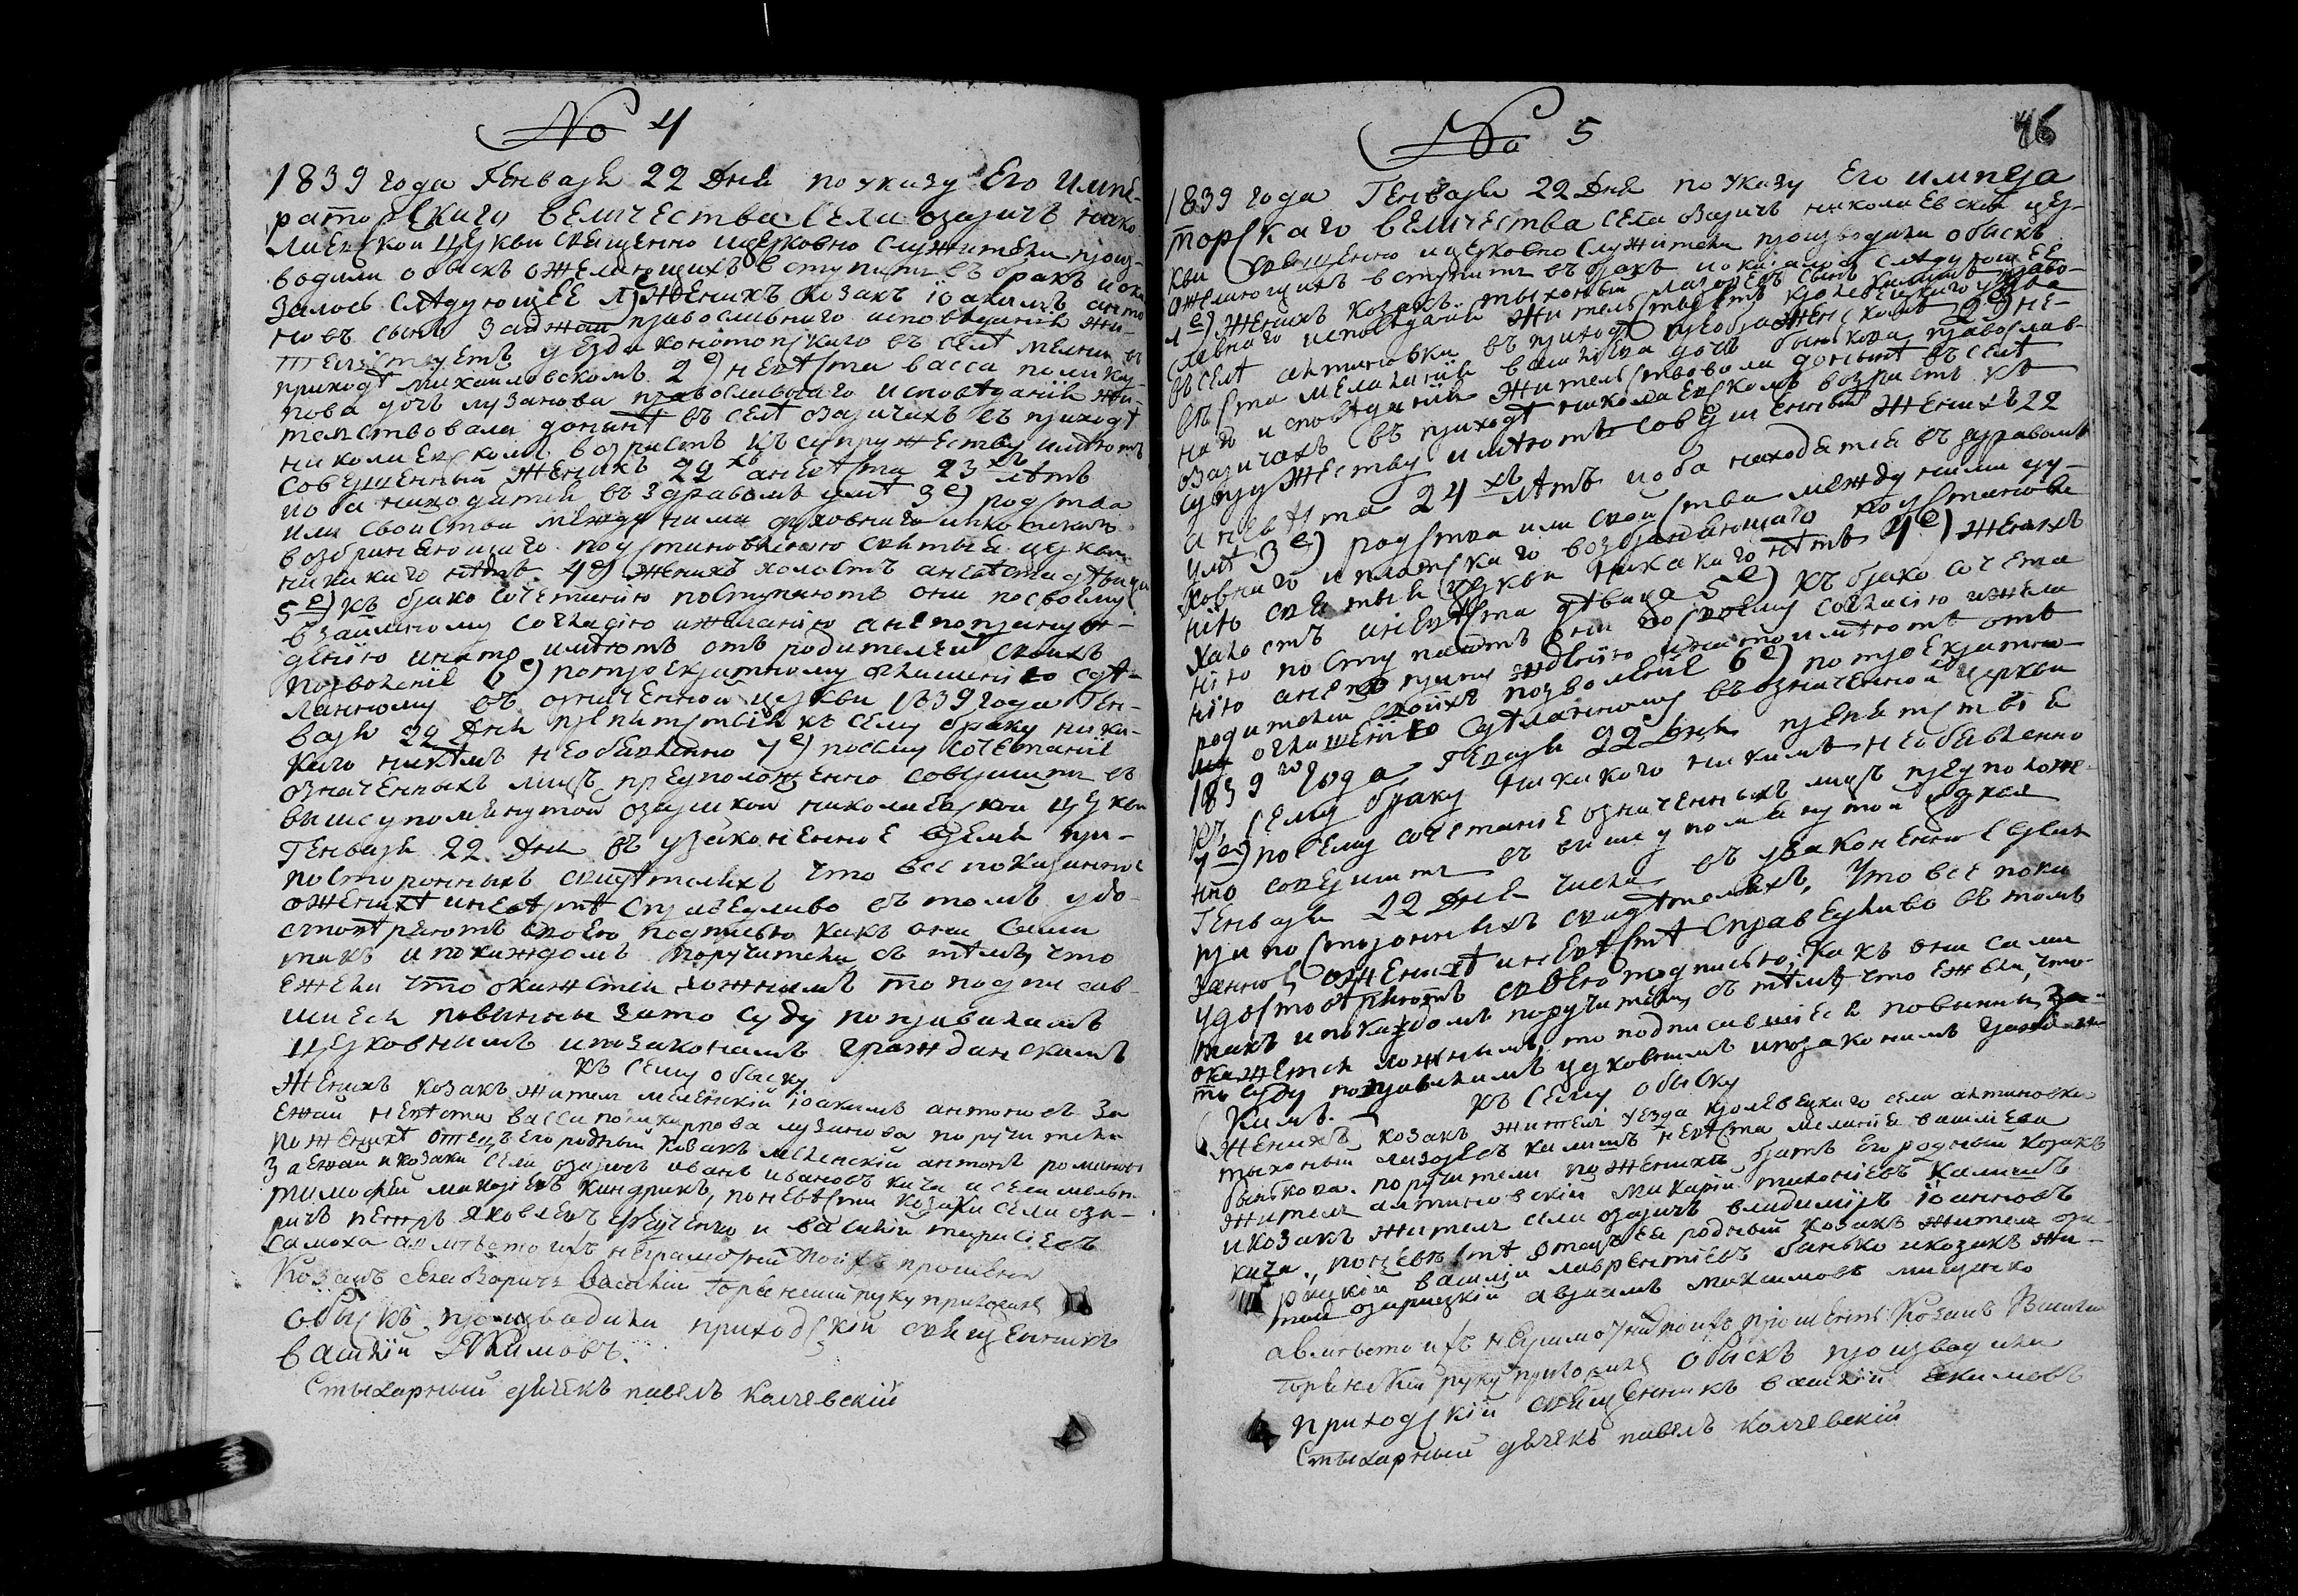 № 4
1839 года Генваря 22 Дня по указу Его Импе-
раторскаго величества села озарич нико
лаевской церкви священно и церковно служители произ-
водили обыскъ о желающихъ вступить въ бракъ и ока
залось следующее 1е) Женихъ козакъ їоакимъ анто
новъ сынъ Заѣжай православнаго исповѣданія жи-
тельствуетъ уезда конотопскаго въ селѣ мельни въ
приходѣ михаиловскомъ 2е) невѣста васса поликар
пова дочъ лузанова православнаго исповѣданія жи-
тельствовала донинѣ въ селѣ озаричахъ въ приходѣ
николаевскомъ возрастъ къ супружеству имѣютъ
совершенный женихъ 22хъ а невѣста 23хъ лѣтъ
и оба находятся въ здравомъ умѣ 3е) родства
или свойства между ними духовнаго и плотскаго
возбраняющаго по установленію святыя церкви
никакаго нѣтъ. 4е) женихъ холостъ а невѣста дѣвица
5е) къ бракосочетанію поступаютъ они по своему
взаимному согласію и желанію а не по принуж-
денію и на то имѣютъ отъ родителей своихъ
позволеніе 6е) по троекратному оглашенію сдѣ-
ланному въ означенной церкви 1839 года Ген-
варя 22 Дня препятствія къ сему браку ника-
каго никѣмъ необявленно 7е) посему сочетаніе
означенныхъ лицъ предположенно совершить въ
вишеупомянутой озарицкой николаевской церкви
Генваря 22 Дня въ узаконенное время при
посторонныхъ свидѣтеляхъ что все показанное
о женихѣ и невѣстѣ справедливо въ томъ удо-
стовѣряютъ своею подписью какъ они сами
такъ и по каждомъ поручители съ тѣмъ, что
ежели что окажется ложнымъ то подписав-
шиеся повинны за то суду по правиламъ
церковнымъ и по законамъ гражданскимъ
къ сему обыску
Женихъ козакъ житель меленскій їоакимъ антоновъ За
ежай невѣста васса поликарпова лузанова поручители
по женихѣ отецъ его родный козакъ меленскій антонъ романовъ
Заежай и козаки села озаричъ иванъ ивановъ кича и села мельни
тимофѣй макаріевъ кандрикъ, по невѣстѣ козаки села оза-
ричъ петръ яковлевъ и василій тарасіевъ
самоха а вместо ихъ неграмотный по ихъ прошенію
Козакъ села Озаричъ Василій руку приложилъ
обыскъ производили приходскій священникъ
василій Якимовъ.
Стыхарный дьячекъ павелъ Колчевскій
№ 5
46
1839 года Генваря 22 Дня по указу Его импера
торскаго величества села озаричъ николаевской цер-
кви священно и церковно служители производили обыскъ
о желающихъ вступить въ бракъ и оказалось следующее
1е) Женихъ козакъ тыхоный лазоревъ сынъ калишъ право-
славнаго исповѣданія жительствуетъ кролевецкаго уезда
въ селѣ антиновки въ приходѣ преображенскомъ 2е) не-
вѣста меланія василіева дочъ банкова православ-
наго исповѣданія жительствовала донынѣ въ селѣ
озаричахъ въ приходѣ николаевскомъ возрастъ къ
супружеству имѣютъ совершенный женихъ 22
а невѣста 24хъ лѣтъ и оба находятся въ здравомъ
умѣ 3е) родства или свойства между ними ду-
ховнаго и плотскаго возбраняющаго по установле
нію святыя церкви никакаго нѣтъ 4е) женихъ
холостъ а невѣста дѣвица 5е) къ бракосочета
нію поступаютъ они по своему согласію и жела
нію а не по принужденію и на то имѣютъ отъ
родителей своихъ позволеніе 6е) по троекратно-
му оглашенію сдѣланному въ означенной церкви
1839го года Генваря 22 Дня препятствія
къ сему браку никакаго никѣмъ необявленно
7е) по сему сочетаніе означенныхъ лицъ предположе-
нно совершить въ вишеупомянутой церкви
Генваря 22 Дня числа въ узаконенное время
при посторонныхъ свидѣтеляхъ, что все пока
занное о женихѣ и невѣстѣ справедливо въ томъ
удостовѣряютъ своею подписью, какъ они сами
такъ и по каждомъ поручители, съ тѣмъ что ежели, что
окажется ложнымъ, то подписавшіеся повинны за
то суду по правиламъ церковнымъ и по законамъ граждан
скимъ. къ сему обыску
Женихъ козакъ житель уезда кролевецкаго села антиновки
тыхоный лазоревъ калишъ невѣста меланія василіева
банкова. поручители по женихѣ братъ его родный козакъ
житель антиновскій макарій калишъ
и козакъ житель села озаричъ владиміръ їоанновъ
кича., по невѣстѣ отецъ ея родный козакъ житель оза-
рицкій василій лаврентіевъ банько и козакъ жи-
тель озарицкій авраамъ максимовъ мищенко
а вместо ихъ неграмотных по ихъ прошенію Козакъ Василій
руку приложилъ обыскъ производили
приходскій священникъ василій якимовъ
Стыхарный дьячекъ павелъ колчевскій